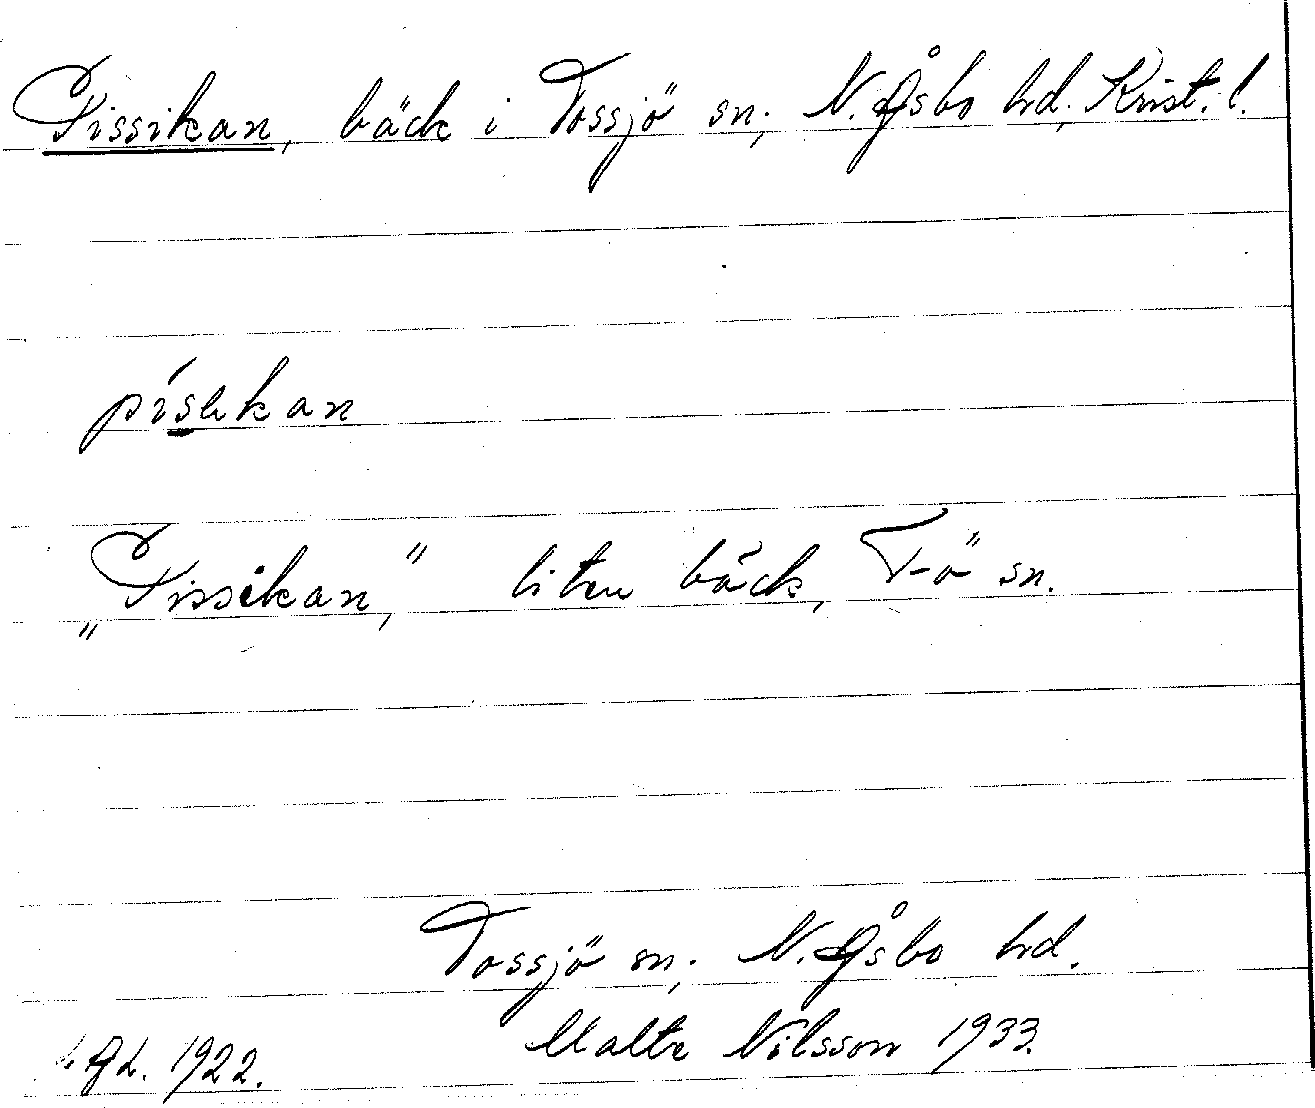 Pissikan, bäck i Tossjö sn, N. Åsbo hd, Krist. l.
písikan
„Pissikan,” liten bäck, T-ö sn.
Tossjö sn, N. Åsbo hd.
Malte Nilsson 1933.
1922.